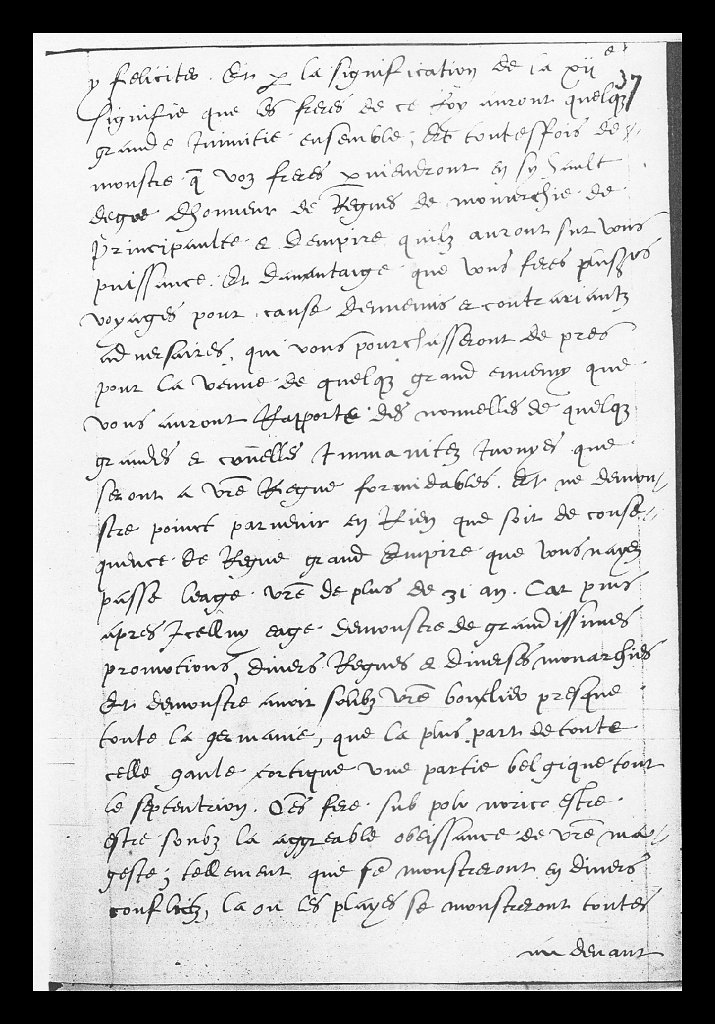 y felicites. Et p la signification de la xii e
37
signifie que les freres de ce Roy auront quelqz
grande Inimitie ensemble, Et toutesfois de-
monstre q voz freres pviendront en sy hault
degre dhonneur de Regnes de monarchie de
Principaulte & dempire quilz auront sur vous
puissance. Et davantaige que vous feres
voyages pour cause dennemis & contrariantz
adversaires, qui vous pourchasseront de pres
pour la venue de quelqz grand ennemy que
vous auront Rapporte des nouvelles de quelqz
grandes & cruelles Immanitez Inouyes que
seront a vre Regne formidables. Et ne demon-
stre poinct parvenir en Rien que soit de conse-
quence de Regne grand Empire que vous nayez
passe leage vre de plus de 31 an. Car puis
apres Icelluy eage demonstre de grandissimes
promotions, divers Regnes & diverses monarchies
Et demonstre avoir soubz vre bouclier presque
toute la germanie, que la plus part de toute
celle gaule celtique une partie belgique tout
le septentrion. sub polo norico estre
estre soubz la aggreable obeissance de vre ma-
geste, tellement que se monstreront en divers
conflictz, la ou les playes se monstreront toutes
au devant